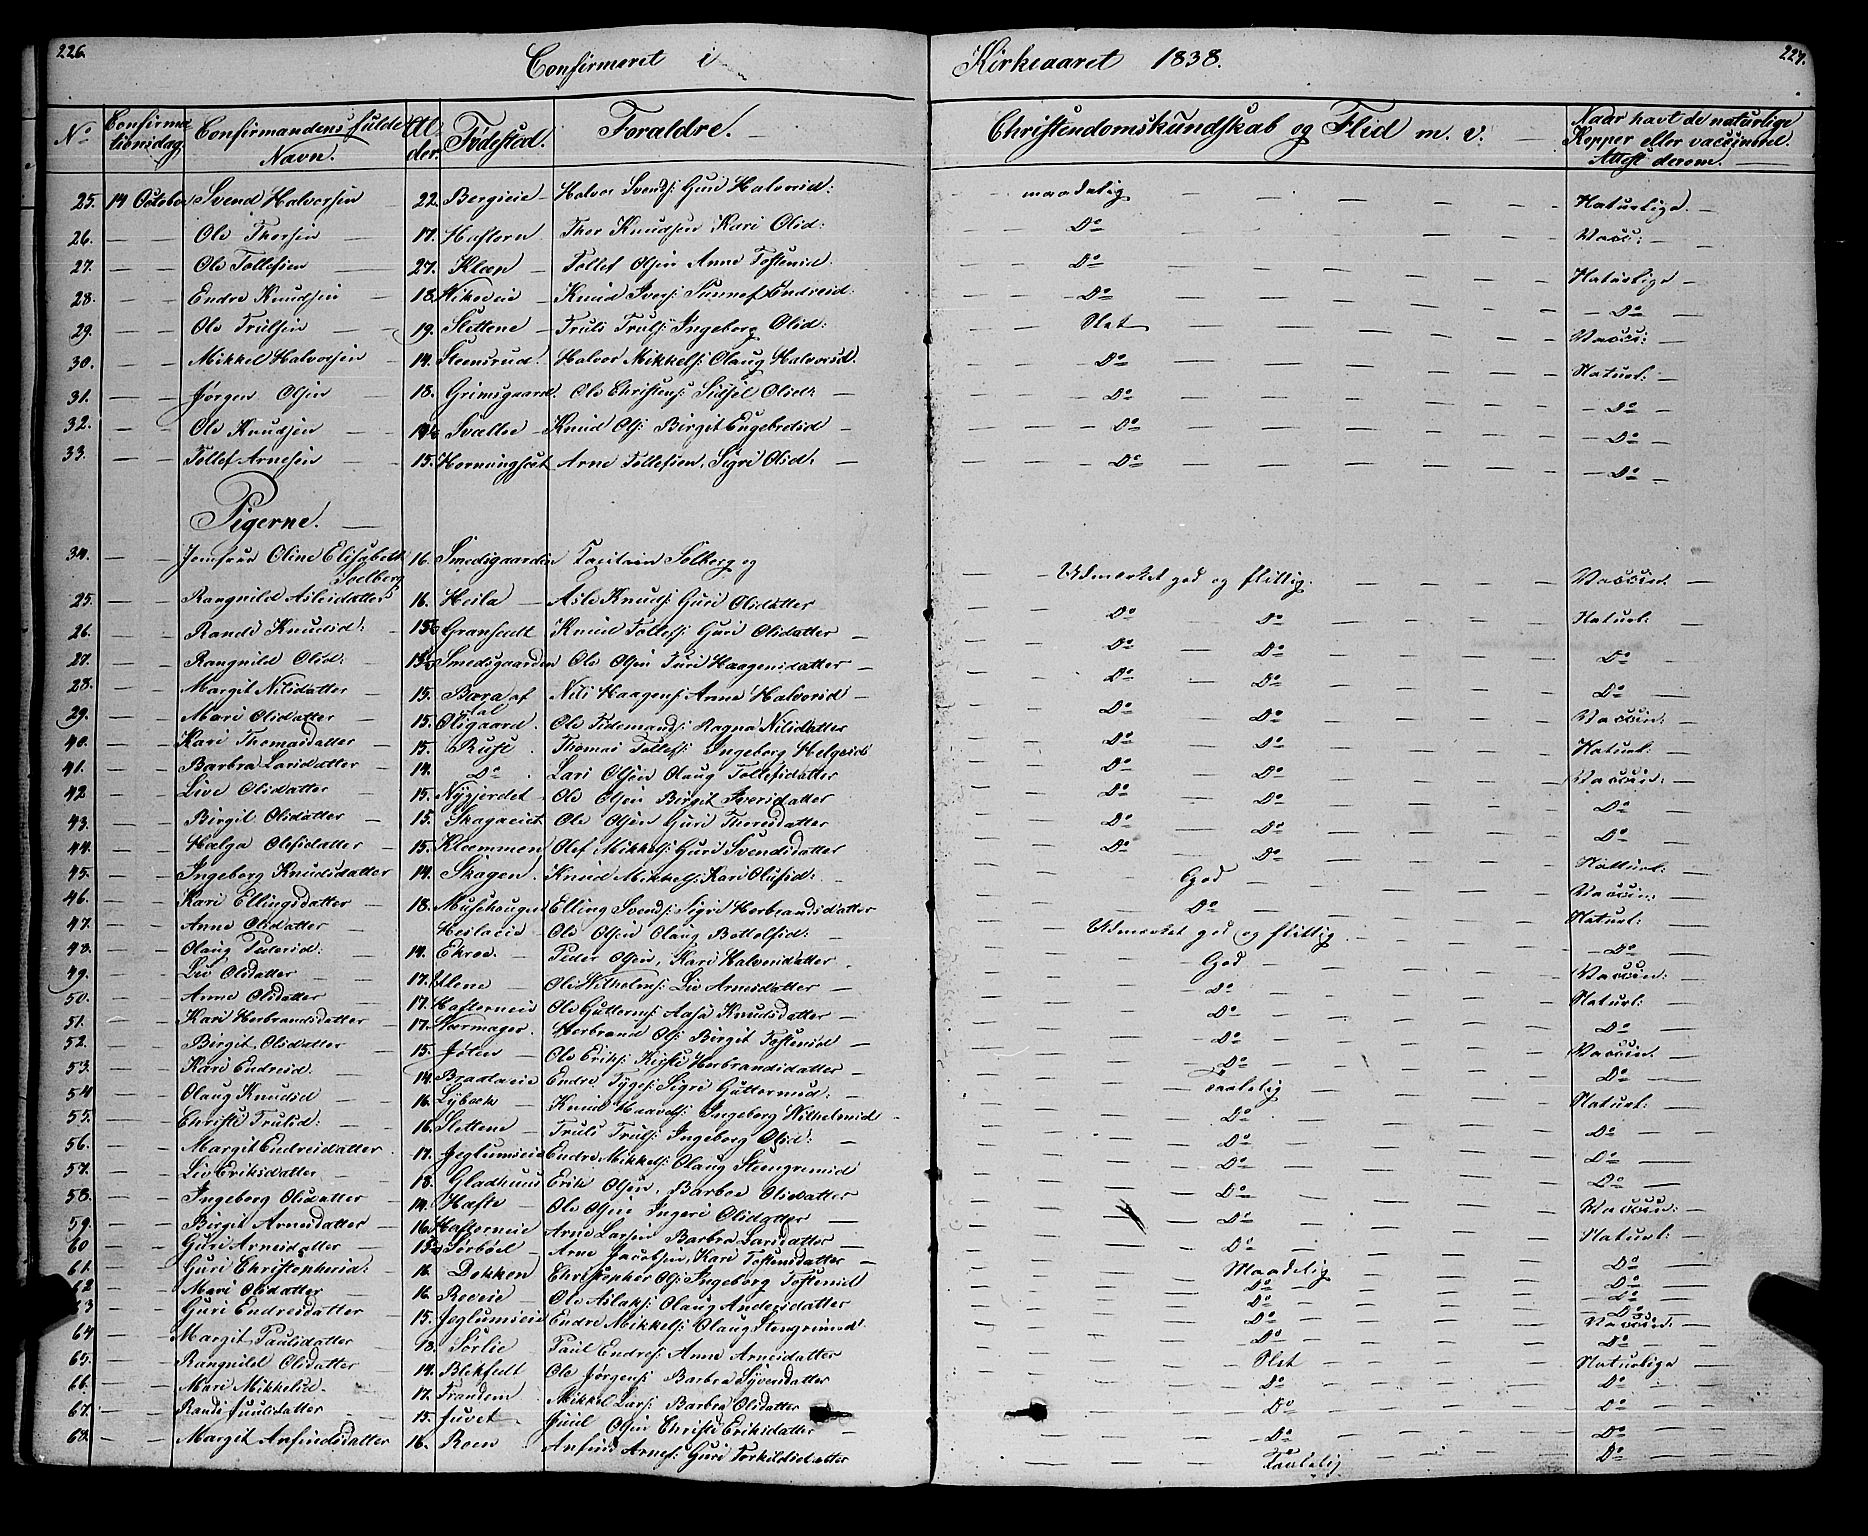 226. Confirmeret i Kirkeaaret 1838. 227.
No Confirmationsdag Confirmandens fulde Navn. Alder. Fødested. Foraldre. Christendomskundskab og Flid m. v. Naar havt de naturlige Kopper eller vaccineret. Attest derom.
25. 14 October Svend Halvorsen 22. Bergieie Halvor Svends: Guri Halvorsd: maadelig Naturlige.
26. — — Ole Thorsen 17. Haftorn Thor Knudsen Kari Olsd: Do Vacc:
27. — — Ole Tollefsen 27. Kleen Tollef Olsen Anne Tostensd: Do Naturlige
28. — — Endre Knudsen 18. Knud Ivers: Sunnef Endresd: Do Do
29. — — Ole Trulsen 19. Slettene Truls Truls: Ingeborg Olsd: Slet Vacci:
30. — — Mikkel Halvorsen 14. Steensrud. Halvor Mikkels: Olaug Halvorsd. Do Naturl:
31. — — Jørgen Olsen 18. Grimsgaard. Ole Christens: Sidsel Olsd: Do Do
32. — — Ole Knudsen Svalle Knud Ols: Birgit Engebredsd Do Do
33. — — Tollef Arnesen 15. Hornungset Arne Tollefsen, Sigri Olsd: Do Do
Pigerne.
34. — — Jomfrue Oline Elisabeth Soelberg 16. Smedsgaarden Capitain Solberg og Udmerket god og flittig. Vaccin.
25. — — Rangnild Aslesdatter 16. Hesla Asle Knuds: Guri Olsdatter Do Do Naturl:
26. — — Randi Knudsd: 15½ Gransedt Knud Tollefs: Guri Olsdatter Do Do Do
27. — — Rangnild Olsd: 15½ Smedsgaarden Ole Olsen Turi Haagensdatter Do Do Do
28. — — Margit Nilsdatter 15. Bæra af Nils Haagens: Anne Halvorsd Do Do Vaccin:
29. — — Mari Olsdatter 15. Ole Tidemands: Ragna Nilsdatter Do Do Naturl:
40. — — Kari Thomasdatter 15. Ruse Thomas Tollefs: Ingeborg Helgesd: Do Do Vaccin:
41. — — Barbra Larsdatter 14. Do Lars Olsen Olaug Tollefsdatter Do Do Do
42 — — Live Olsdatter 15. Nygjerdet Ole Olsen Birgit Iversdatter Do Do Do
43. — — Birgit Olsdatter 15. Skagaeiet Ole Olsen Guri Thoresdatter Do Do
44. — — Helga Olefsdatter 15. Klemmen Olef Mikkels: Guri Svendsdatter Do Do
45. — — Ingeborg Knudsdatter 14. Skagen Knud Mikkels: Kari Olufsd: God Natturl:
46. — — Kari Ellingsdatter 18. Musehougen Elling Svends: Sigri Herbrandsdatter Do Vaccin:
47. — — Anne Olsdatter Heslaeie Ole Olsen Olaug Bottolfsd: Udmerket god og flittig Naturl:
48. — — Olaug Pedersd: 14. Ekroe. Peder Olsen, Kari Halvorsdatter God Do
49. — — Liv Olsdatter 17. Ulene Ole Wilhelms: Liv Arnesdatter Do Vaccin:
50. — — Anne Olsdatter 17. Hafterneie Ole Gutterms: Aase Knudsdatter Do Naturl:
51. — — Kari Herbrandsdatter 17. Nærmager. Herbrand Ols: Birgit Tostensd Do Do
52. — — Birgit Olsdatter 15. Jøten Ole Eriks: Kirste Herbrandsdatter Do Vaccin.
53. — — Kari Endresd. 14. Bradaeie Endre Tyges: Sigri Guttormsd: Taalelig Do
54 — — Olaug Knudsd 16. Lybæk Knud Haavels: Ingeborg Wilhelmsd Do Naturl:
55. — — Christi Trulsd: 16. Slettene Truls Truls: Ingeborg Olsd: Do Do
56. — — Margit Endresdatter 17. Jeglumseie Endre Mikkels: Olaug Steengrimsd Do Do
57. — — Liv Eriksdatter 18. Gladhuus Erik Olsen, Barbra Olsdatter Do Do
58. — — Ingeborg Olsdatter 14. Hafte Ole Olsen Ingeri Olsdatter Do Vaccin:
59. — — Birgit Arnesdatter 16. Hafterneie Arne Larsen Barbra Larsdatter Do Naturl:
60 — — Guri Arnesdatter 15½ Torbøel Arne Jacobsen, Kari Tostensdatter Do
61. — — Guri Christophersd: 16 Dokken Christopher Ols: Ingeborg Tostensd Maadelig Do
62 — — Mari Olsdatter 16. Roeeie Ole Aslaks: Olaug Andersdatter Do Do
63 — — Guri Endresdatter 15. Jeglumseie Endre Mikkels: Olaug Stengrimsd: Do Do
64 — — Margit Paulsdatter 18. Sørlie Paul Endres: Anne Arnesdatter Do Vaccin:
65. — — Rangnild Olsdatter 14. Blekfedt Ole Jørgens: Barbra Syvendatter Slet Naturlige
66. — — Mari Mikkelsd. 17. Trandem Mikkel Lars: Barbra Olsdatter Do Do
67. — — Randi Juulsdatter 15. Juvet Juul Olsen Christi Eriksdatter Do Do
68. — — Margit Anfindsdatter 16. Roen Anfind Arnes: Guri Torkildsdatter Taalelig Do